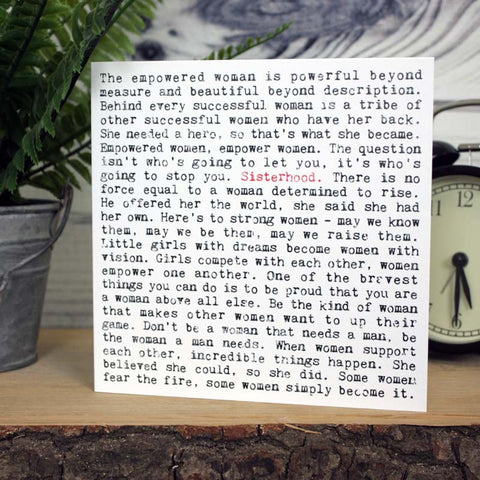 The empowered woman is powerful beyond
measure and beautiful beyond description.
Behind every successful woman is a tribe of
other successful women who have her back.
She needed a hero, so that's what she became.
Empowered women, empower women. The question
isn't who's going to let you, it's who's
going to stop you. Sisterhood. There is no
force equal to a woman determined to rise.
He offered her the world, she said she had
her own. Here's to strong women - may we know
them, may we be them, may we raise them.
Little girls with dreams become women with
vision. Girls compete with each other, women
empower one another. One of the bravest
things you can do is to be proud that you are
a woman above all else. Be the kind of woman
that makes other women want to up their
game. Don't be a woman that needs a man, be
the woman a man needs. When women support
each other, incredible things happen. She
believed she could, so she did. Some women
fear the fire, some women simply become it.
12
1
2